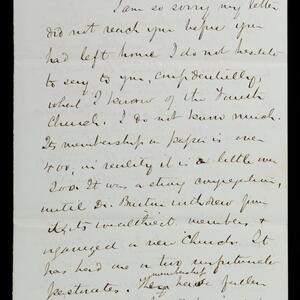 I am so sorry my letter
did not reach you before you
had left home. I do not hesitate
to say to you, confidentially,
what I know of the Fourth
Church. I do not know much.
Its membership on paper is over
400, in reality it is a little over
200. It was a strong congregation,
until Dr. Burton withdrew from
it its wealthiest members &
organized a new Church. It
has had one or two unfortunate
pastorates. The membership have fallen